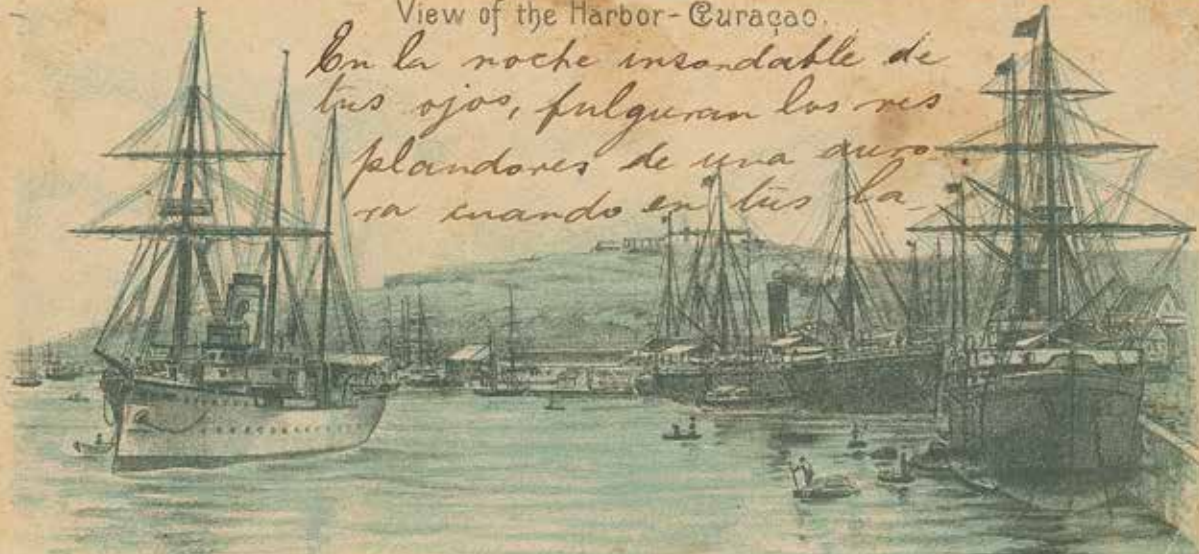 View of the Harbor-Curaçao.
En la noche insondable de
tus ojos, fulguran los res
plandores de una auro-
ra cuando en tus la-